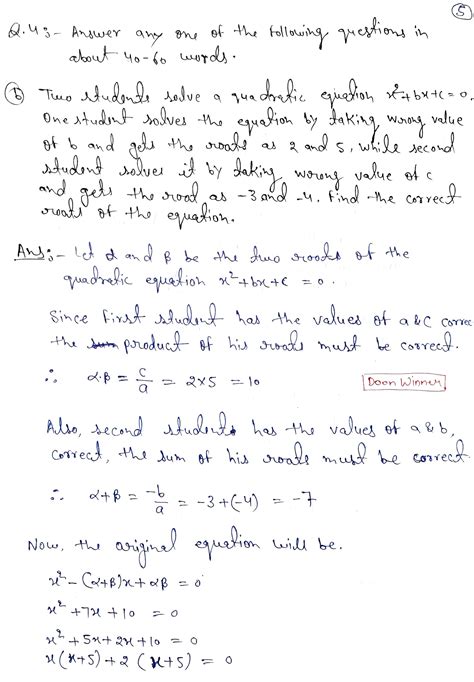 5
Q.4:- Answer any one of the following questions in
about 40-60 words.
(b) Two students solve a quadratic equation x²+bx+c=0.
One student solves the equation by taking wrong value
of b and gets the roots as 2 and 5, while second
student solves it by taking wrong value of c
and gets the root as -3 and -4. Find the correct
roots of the equation.
Ans:- Let α and β be the two roots of the
quadratic equation x²+bx+c = 0.
Since First student has the values of a & c correc
the product of his roots must be correct.
∴ α.β = c/a = 2×5 = 10
Doon Winner
Also, second student has the values of a & b,
correct, the sum of his roots must be correct
∴ α+β = -b/a = -3+(-4) = -7
Now, the original equation will be.
x²-(α+β)x+αβ = 0
x²+7x+10 = 0
x²+5x+2x+10 = 0
x(x+5)+2(x+5) = 0